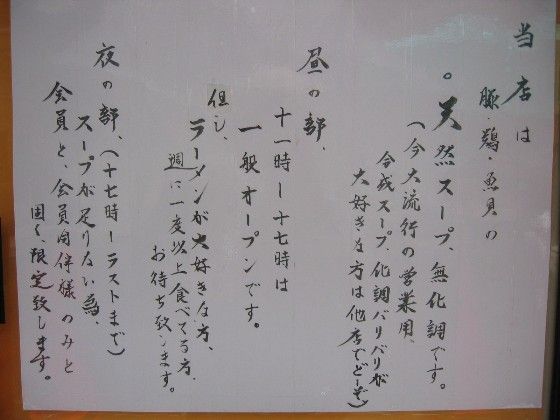 当店は
豚・鶏・魚貝の
。天然スープ、無化調です。
(今大流行の営業用、
合成スープ、化調バリバリが
大好きな方は他店でどーぞ)
昼の部、
十一時ー十七時は
一般オープンです。
但し、
ラーメンが大好きな方、
週に一度以上食べてる方、
お待ち致します。
夜の部、(十七時ーラストまで)
スープが足りない為、
会員と、会員同伴様のみと
固く、限定致します。